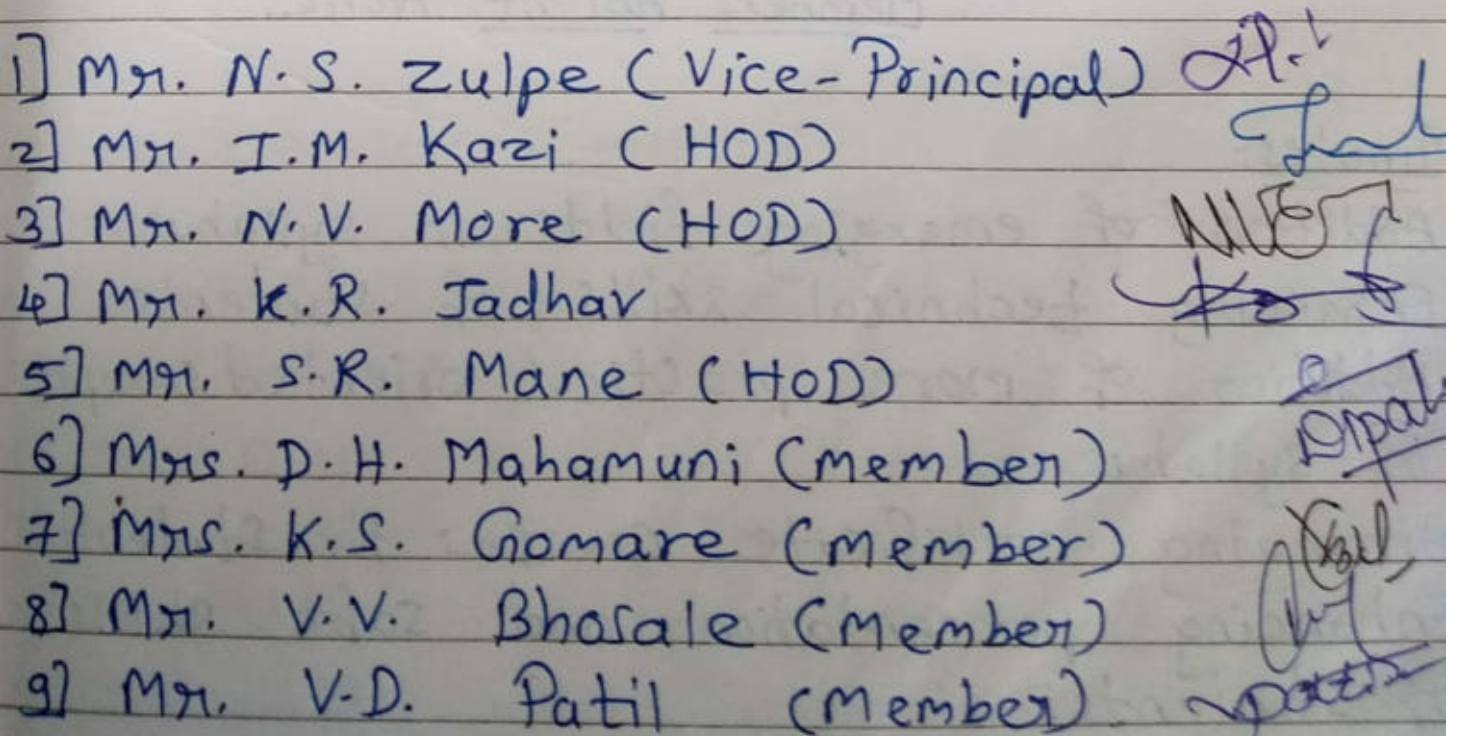 1] Mr. N.S. Zulpe (Vice-Principal)
2] Mr. I.M. Kazi (HOD)
3] Mr. N.V. More (HOD)
4] Mr. K.R. Jadhav
5] Mr. S.R. Mane (HOD)
6] Mrs. D.H. Mahamuni (Member)
7] Mrs. K.S. Gomare (Member)
8] Mr. V.V. Bhosale (Member)
9] Mr. V.D. Patil (Member)